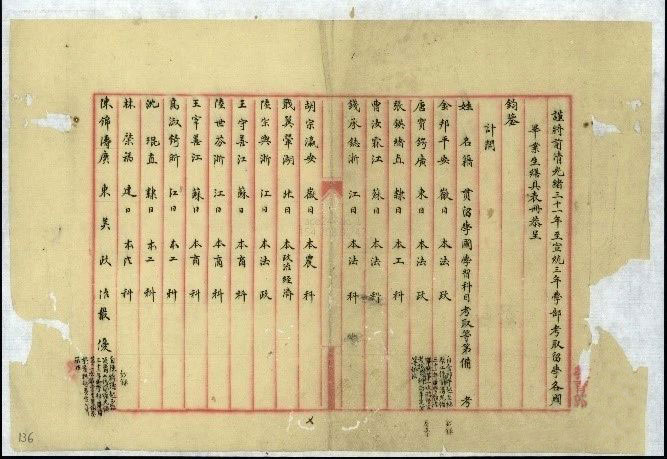 謹將前清光緒三十一年至宣統三年學部考取留學各國
畢業生繕具表冊恭呈
鈞鑒
計開
姓名籍貫留學國學習科目考取等第備考
金邦平安徽日本法政
唐寶鍔廣東日本法政
張鍈緒直隸日本工科
曹汝霖江蘇日本法科
錢承鋕浙江日本法科
胡宗瀛安徽日本農科
戢翼翬湖北日本政治經濟
陸宗輿浙江日本法政
王守善江蘇日本商科
陸世芬浙江日本商科
王宰善江蘇日本商科
高淑琦浙江日本工科
沈琨直隸日本工科
林棨福建日本法科
陳錦濤廣東美政法最優
136